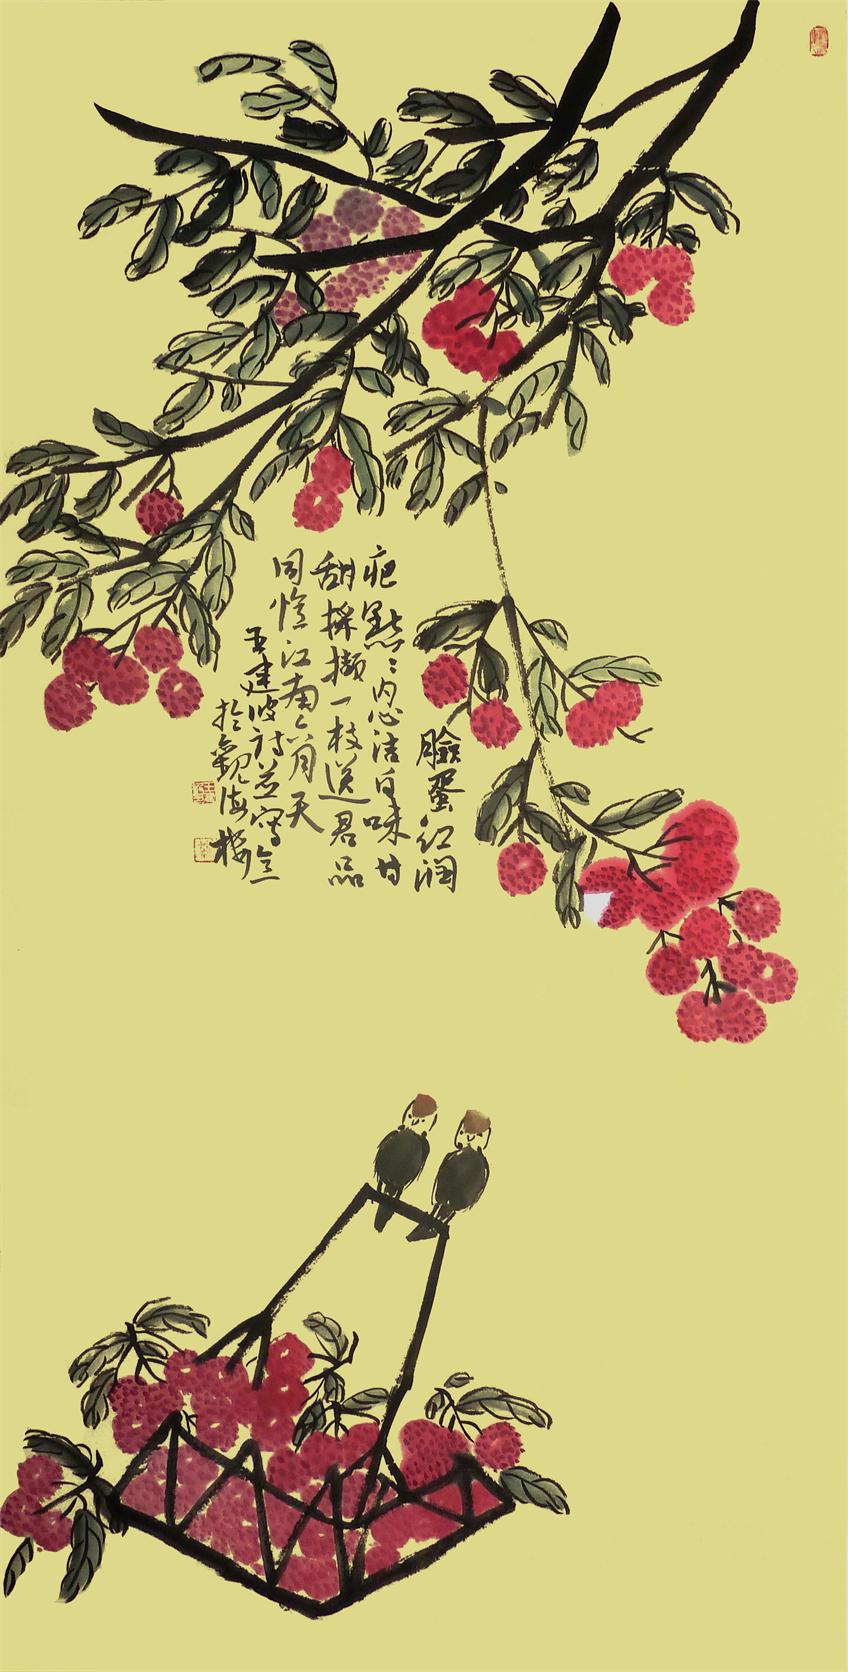 臉蛋紅潤
疤點點內心洁白味甘
甜採擷一枝送君品
同憶江南六月天
王建波詩並寫
於觀海樓